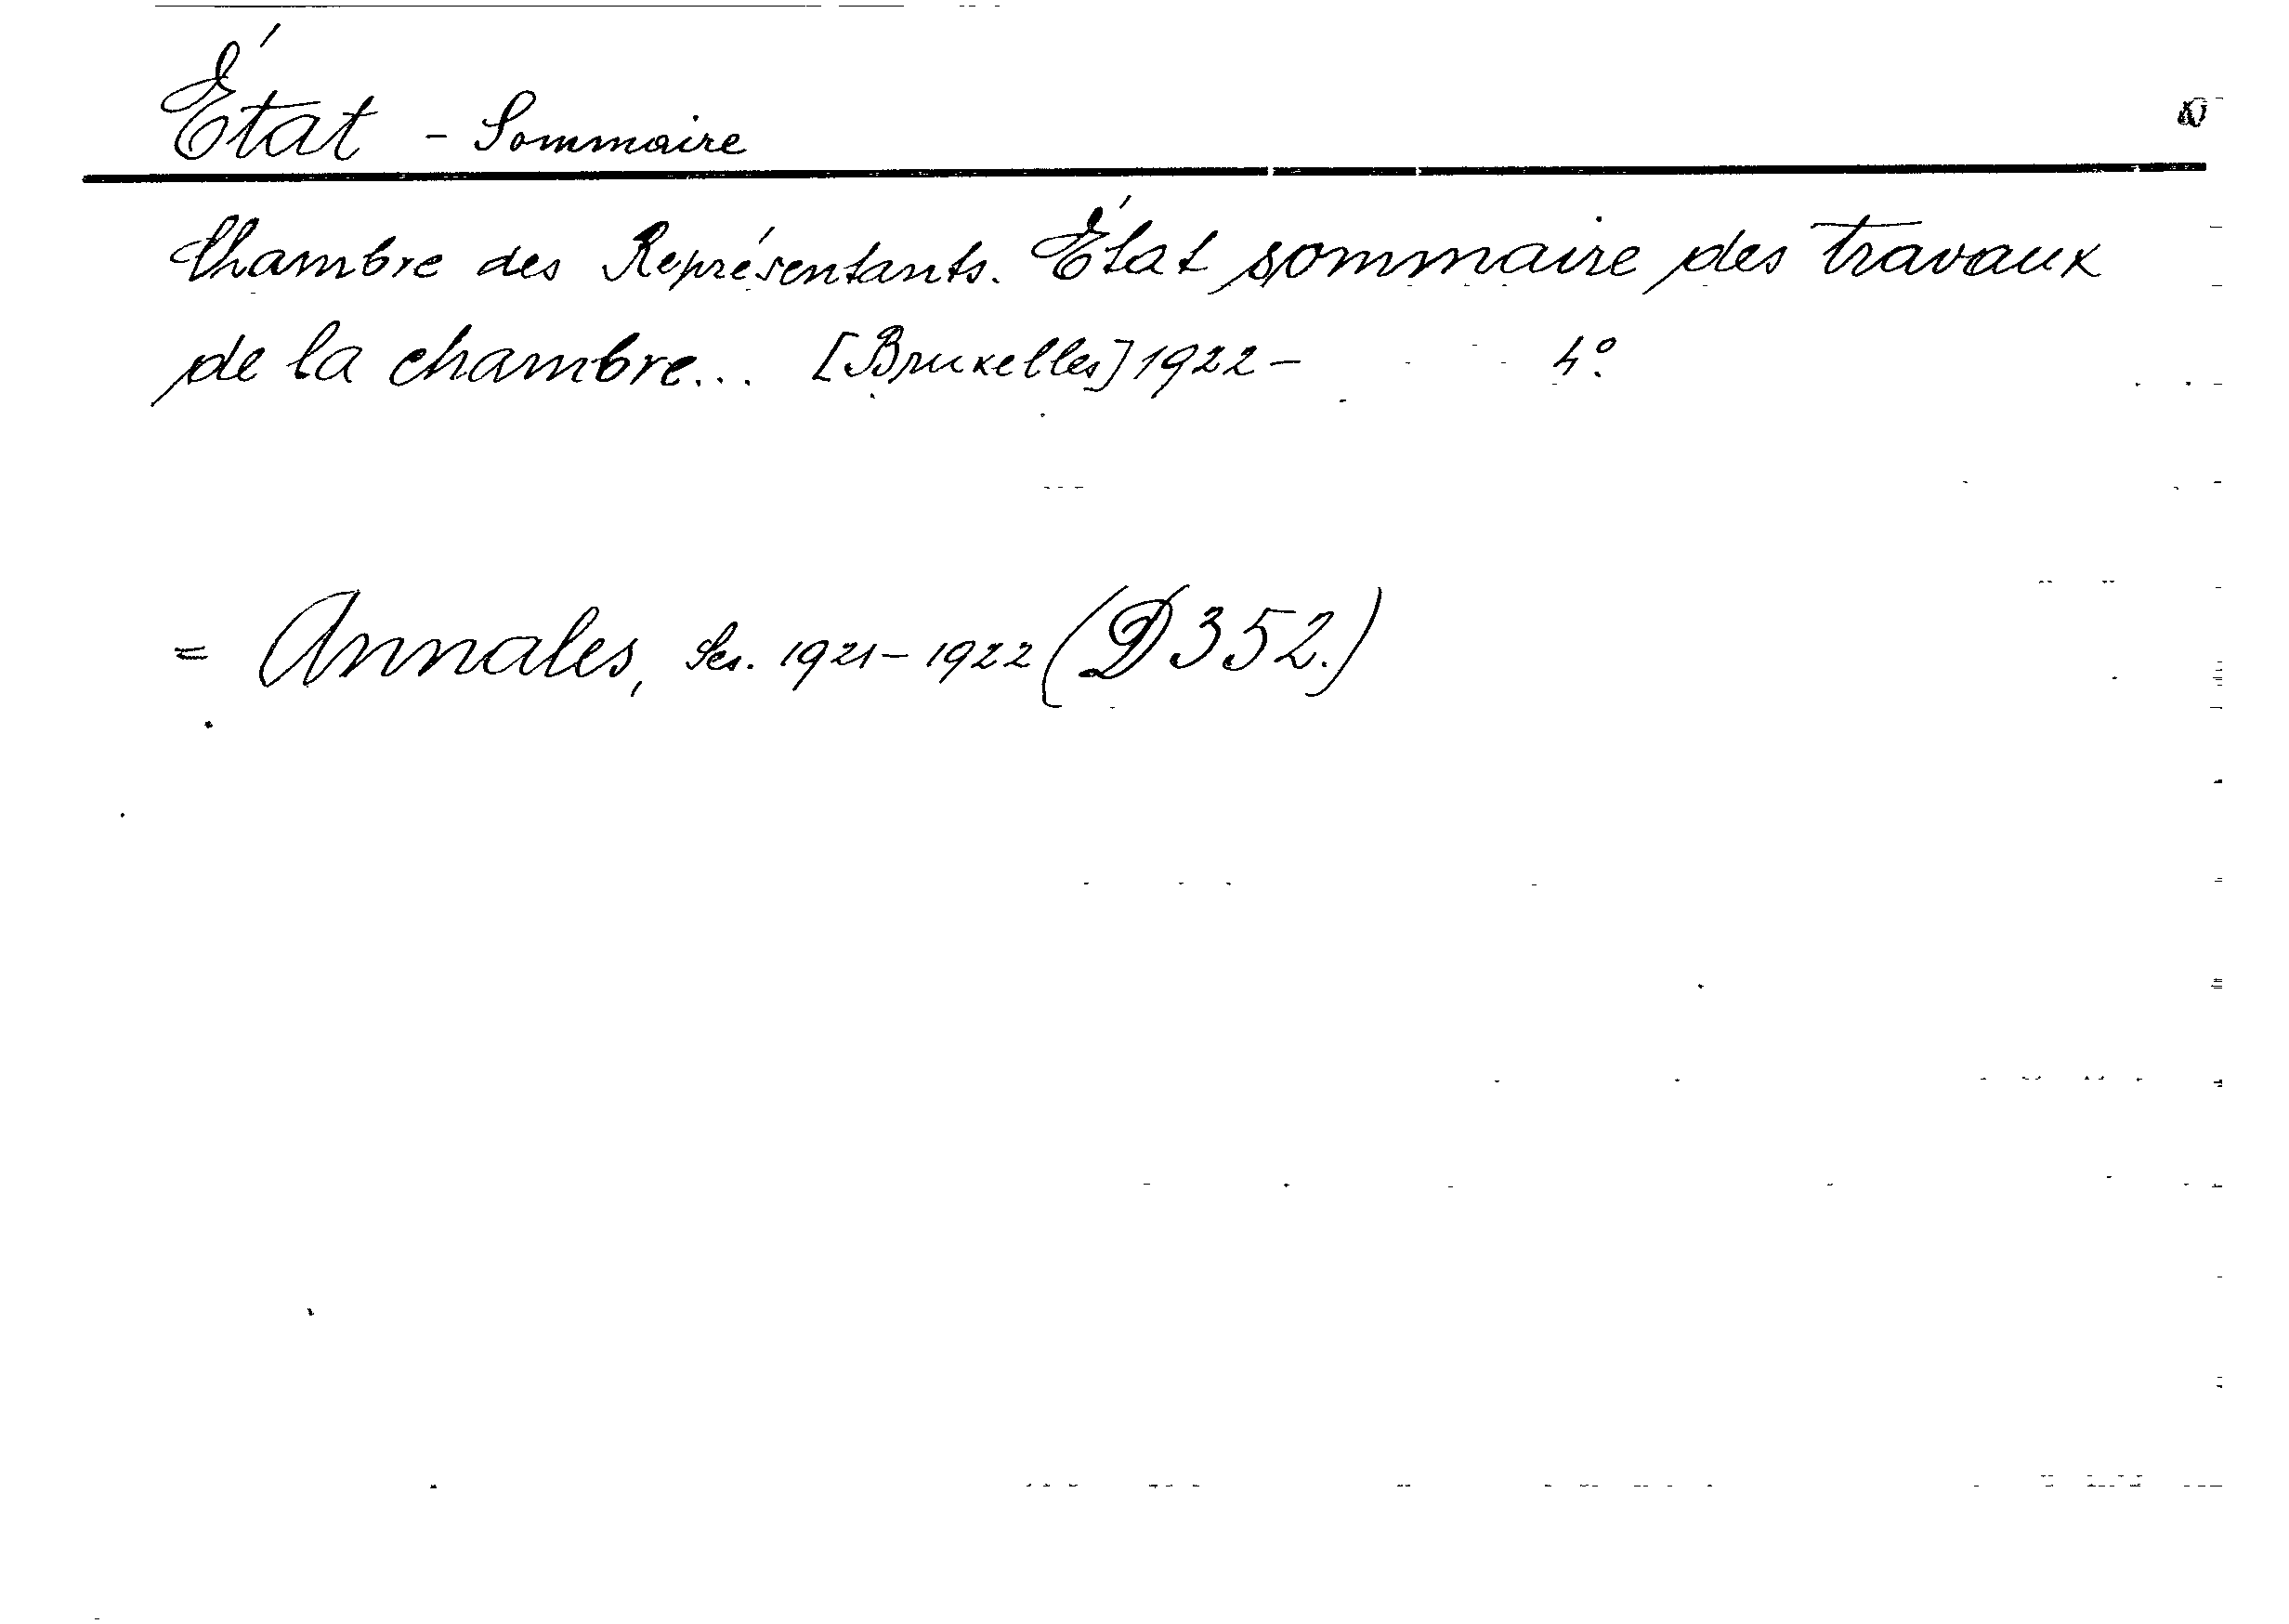 État - Sommaire
Chambre des Représentants. État sommaire des travaux
de la chambre... [Bruxelles] 1922- 4º.
= Annales, Ses. 1921-1922 (D352.)